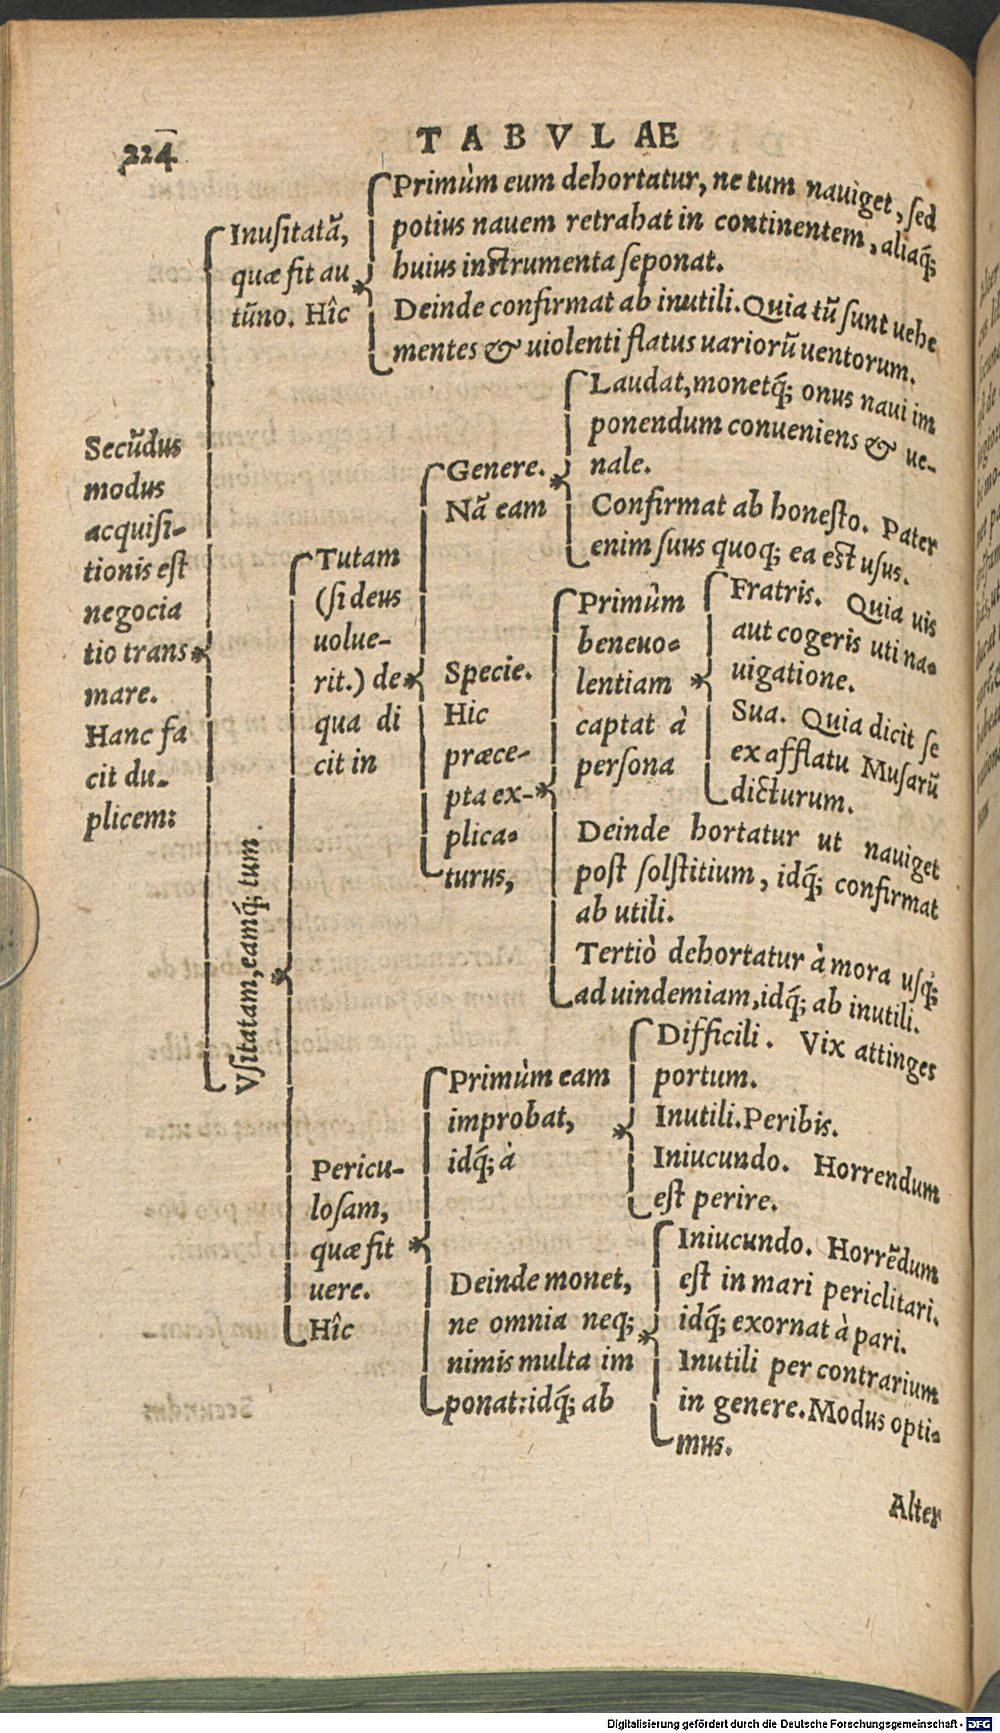 224
TABVLAE
Secũdus
modus
acquisi-
tionis est
negocia
tio trans
mare.
Hanc fa
cit du-
plicem:
Inusitatã,
quæ fit au
tũno. Hîc
Primùm eum dehortatur, ne tum nauiget, sed
potius nauem retrahat in continentem, aliaq́;
huius instrumenta seponat.
Deinde confirmat ab inutili. Quia tũ sunt uehe
mentes & uiolenti flatus uariorũ uentorum.
Vsitatam, eamq́; tum
Tutam
(si deus
uolue-
rit.) de
qua di
cit in
Genere.
Nã eam
Laudat, monetq́; onus naui im
ponendum conueniens & ue-
nale.
Confirmat ab honesto. Pater
enim suus quoq; ea est usus.
Specie.
Hic
præce-
pta ex-
plica-
turus,
Primùm
beneuo-
lentiam
captat à
persona
Fratris. Quia uis
aut cogeris uti na-
uigatione.
Sua. Quia dicit se
ex afflatu Musarũ
dicturum.
Deinde hortatur ut nauiget
post solstitium, idq́; confirmat
ab utili.
Tertiò dehortatur à mora usq;
ad uindemiam, idq́; ab inutili.
Pericu-
losam,
quæ fit
uere.
Hîc
Primùm eam
improbat,
idq́; à
Difficili. Vix attinges
portum.
Inutili. Peribis.
Iniucundo. Horrendum
est perire.
Deinde monet,
ne omnia neq;
nimis multa im
ponat: idq́; ab
Iniucundo. Horrẽdum
est in mari periclitari.
idq́; exornat à pari.
Inutili per contrarium
in genere. Modus opti-
mus.
Alter
Digitalisierung gefördert durch die Deutsche Forschungsgemeinschaft - DFG